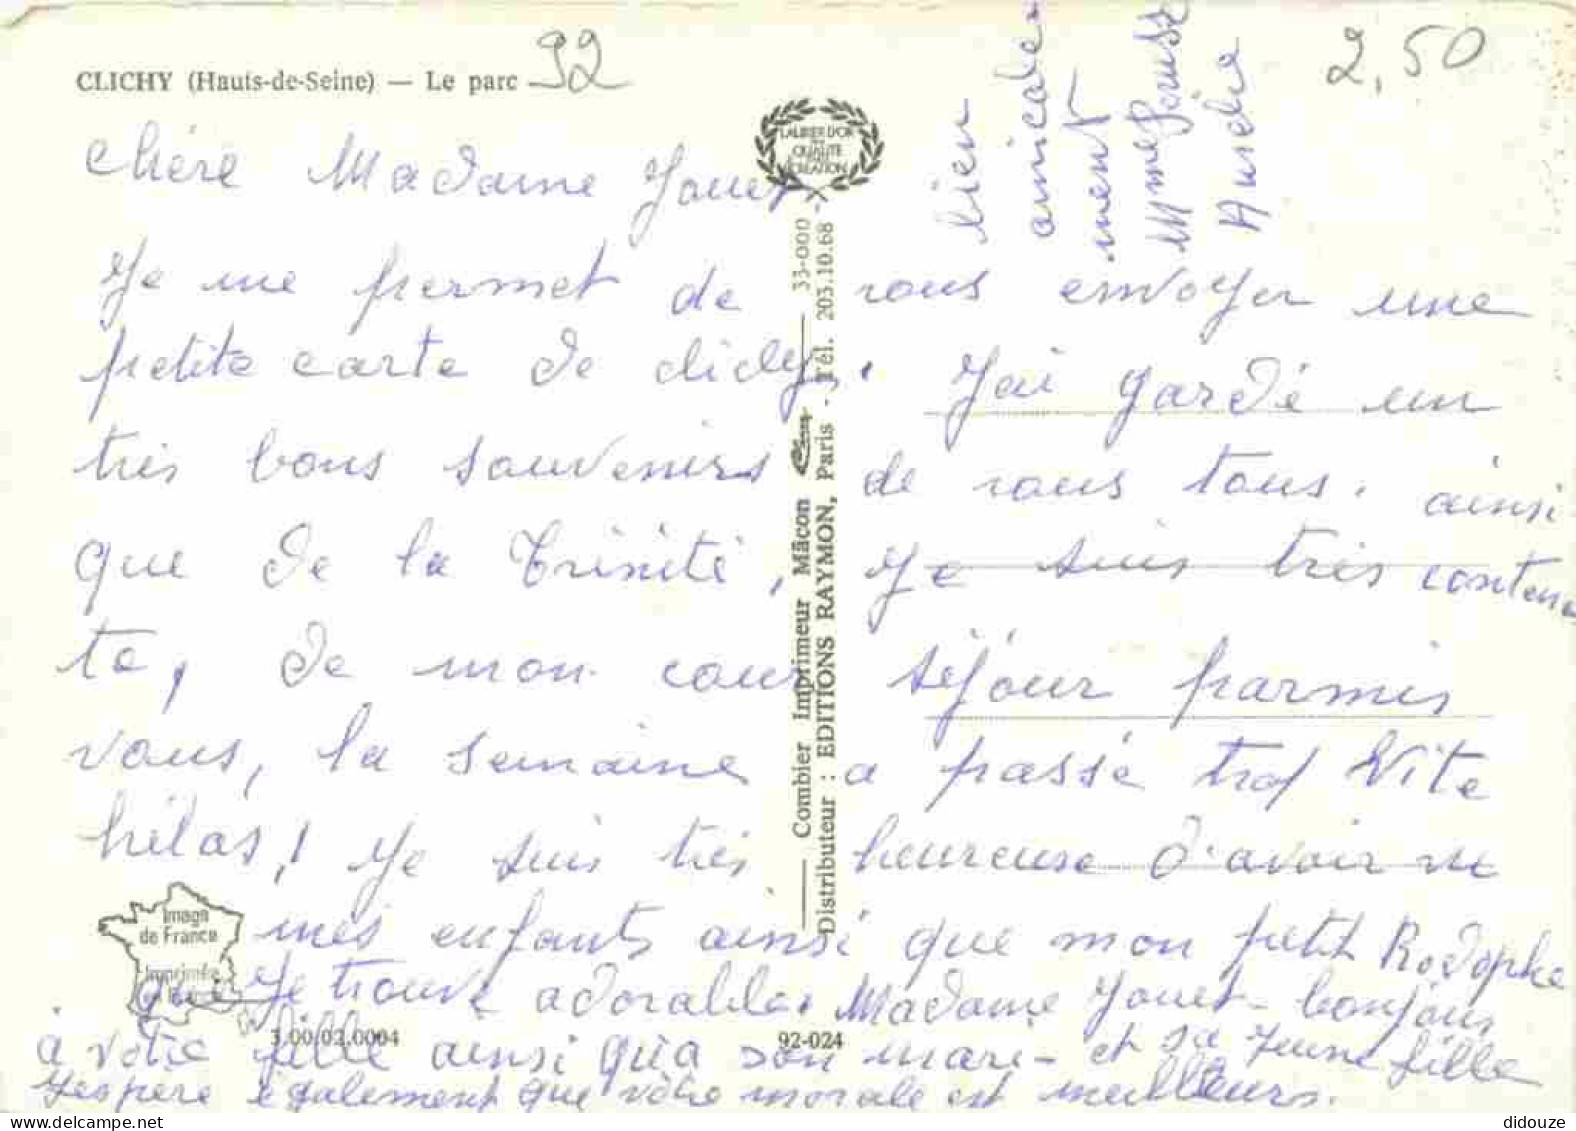 CLICHY (Hauts-de-Seine) — Le parc 92
2,50
LAURIER D'OR
QUALITÉ
CRÉATION
chère Madame Jouet
Je me permet de vous envoyer une
petite carte de clichy. J'ai gardé un
très bons souvenirs de vous tous. ainsi
que de la trinité, Je suis très conten
te, de mon cour séjour parmis
vous, la semaine a passé trop vite
hélas! Je suis très heureuse d'avoir vu
mes enfants ainsi que mon petit Rodophe
que Je trouve adorable. Madame Jouet bonjour
à votre fille ainsi qu'a son mari - et sa jeune fille
J'espère également que votre morale est meilleurs.
bien
amicale
ment
Mme
Combier Imprimeur Mâcon 33-000
Distributeur : EDITIONS RAYMON, Paris - Tél. 203.10.68
Image
de France
Imprimée
3.00.02.0004
92-024
delcampe.net
didouze